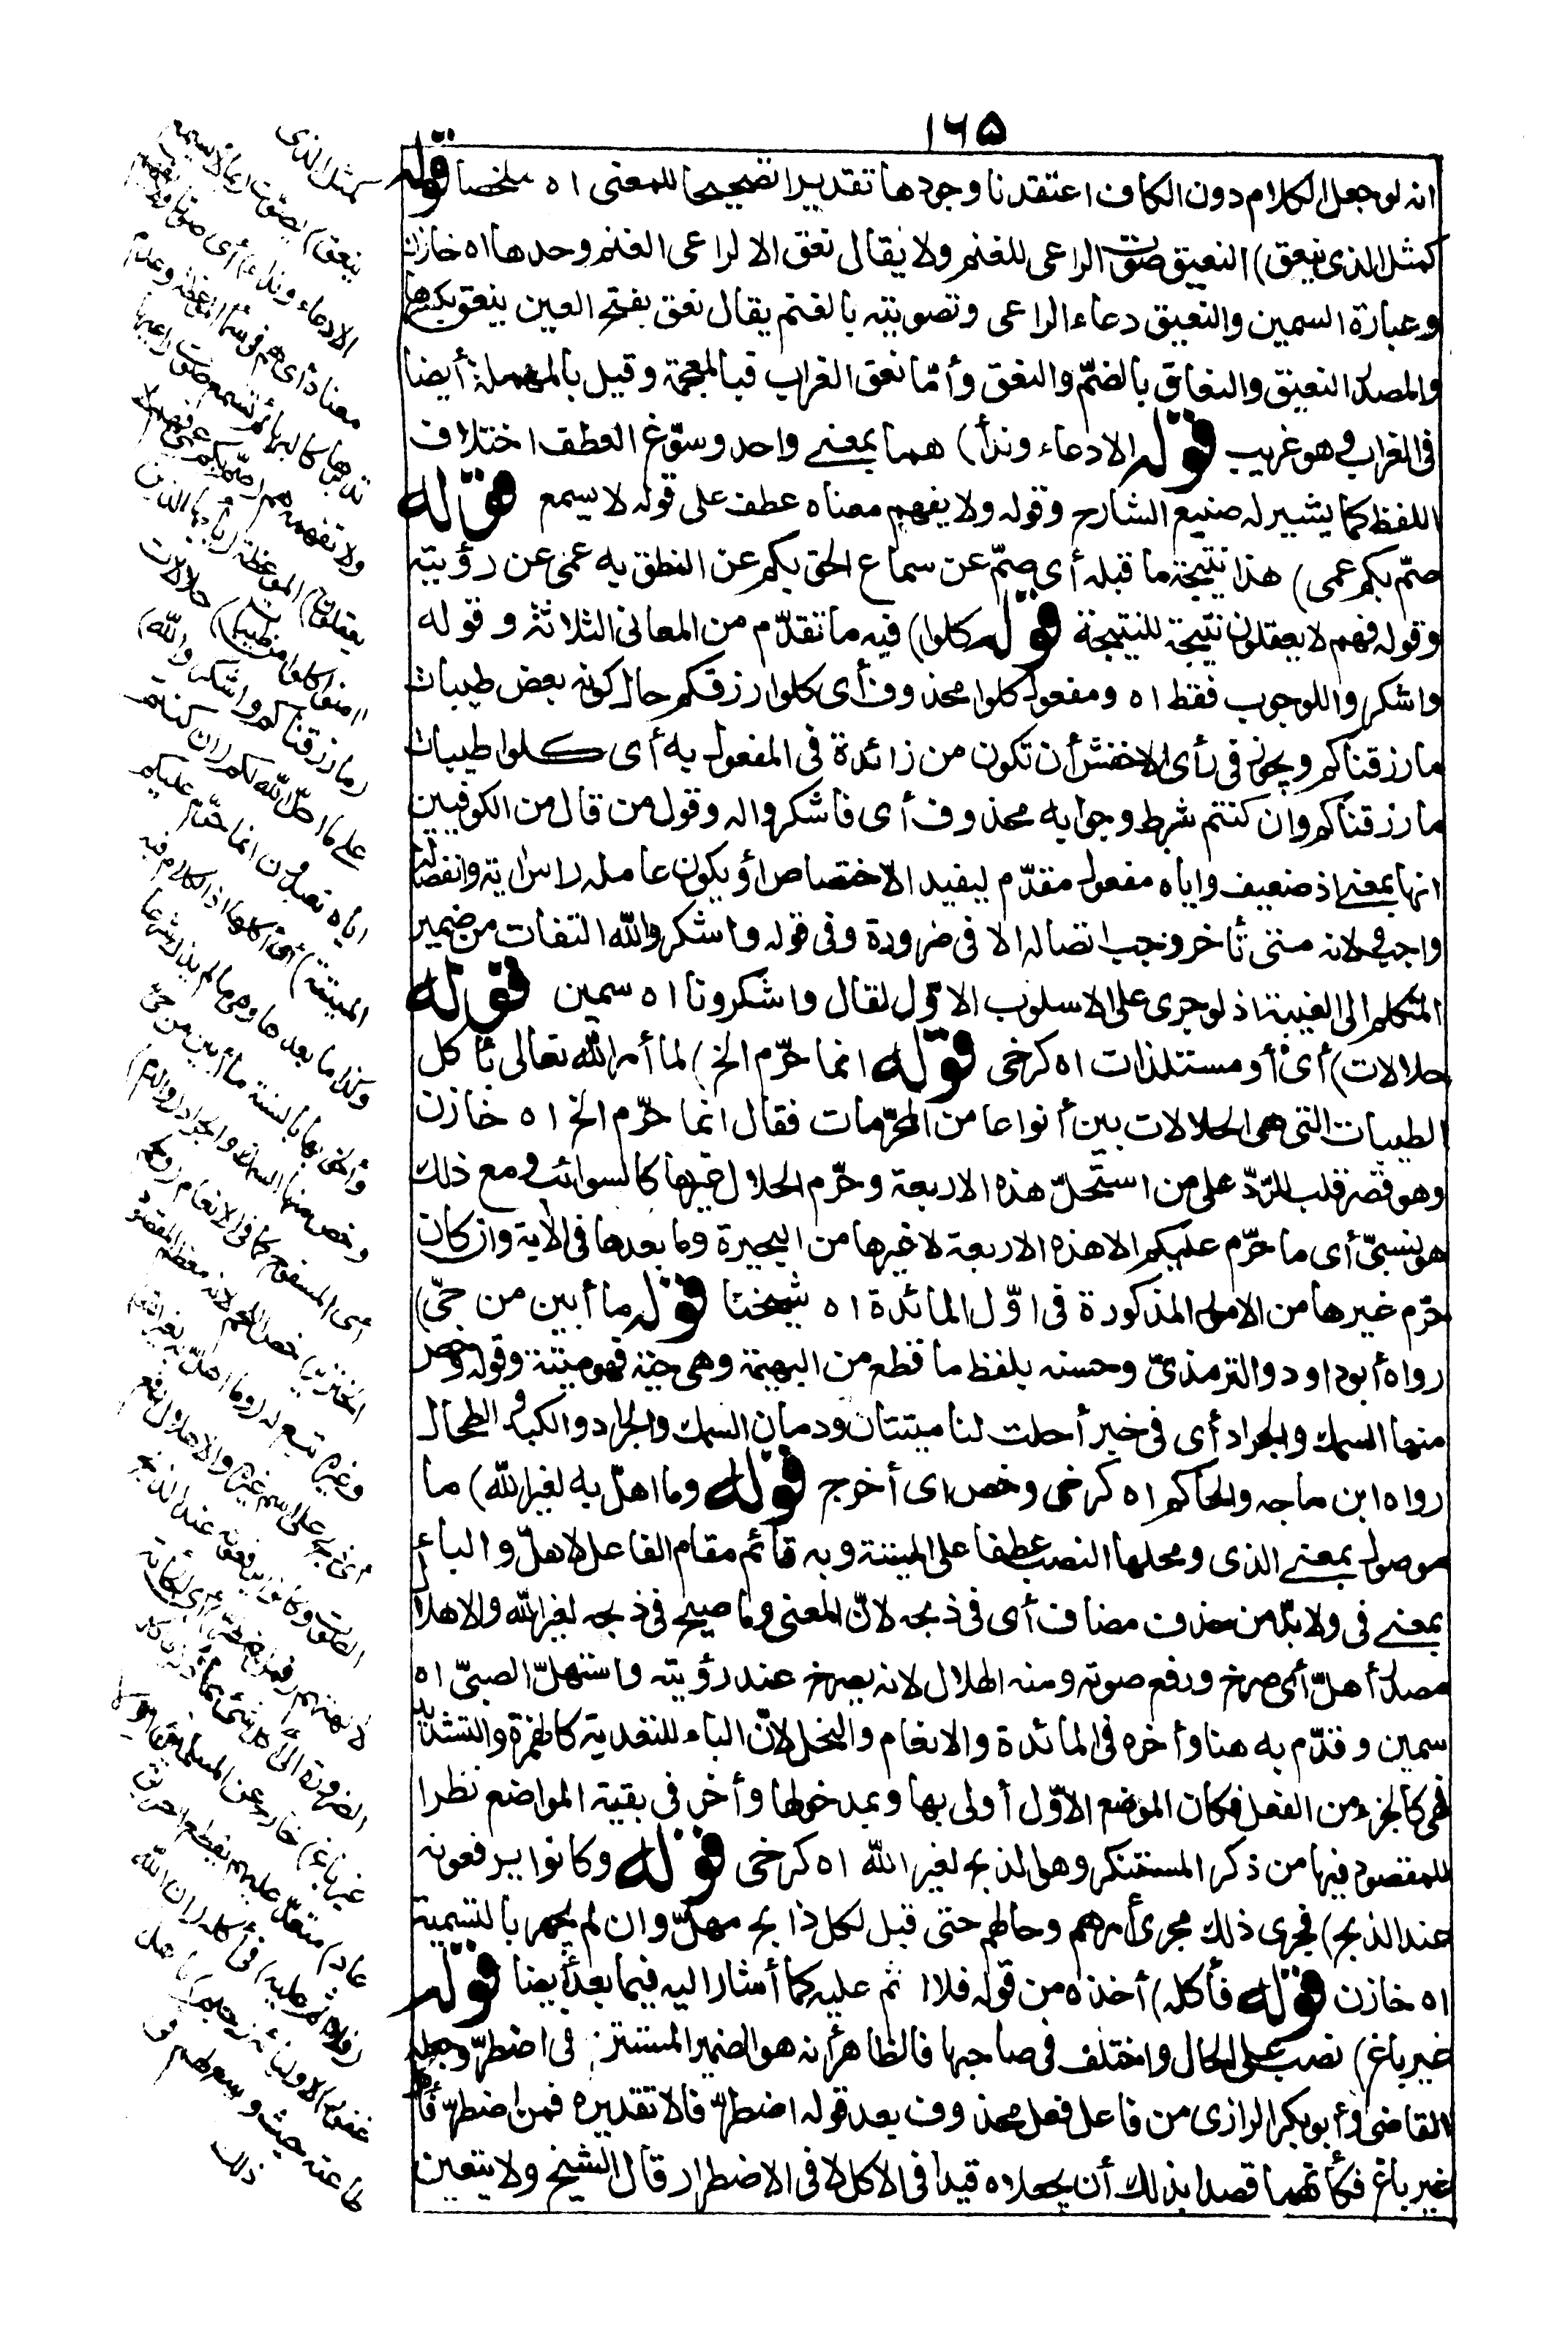 ١٦٥
انه لو جعل الكلام دون الكاف اعتقدنا وجودها تقديرا تصحيحا للمعنى اه ملخصا قوله
كمثل الذى ينعق) النعيق صوت الراعى للغنم ولا يقال نعق الا لراعى الغنم وحدها اه خازن
وعبارة السمين والنعيق دعاء الراعى وتصويته بالغنم يقال نعق بفتح العين ينعق بكسرها
والمصدر النعيق والنعاق بالضمّ والنعق وأمّا نعق الغراب فبالمعجمة وقيل بالمهملة أيضا
فى الغراب وهو غريب قوله الا دعاء وندأ) هما بمعنى واحد وسوّغ العطف اختلاف
اللفظ كما يشير له صنيع الشارح وقوله ولا يفهم معناه عطف على قوله لا يسمع قوله
صمّ بكم عمى) هذا نتيجة ما قبله أى صمّ عن سماع الحق بكم عن النطق به عمى عن رؤيته
وقوله فهم لا يعقلون نتيجة للنتيجة قوله كلوا) فيه ما تقدّم من المعانى الثلاثة وقوله
واشكروا للوجوب فقط اه ومفعول كلوا محذوف أى كلوا رزقكم حال كونه بعض طيبات
ما رزقناكم ويجوز فى رأى الاخفش أن تكون من زائدة فى المفعول به أى كلوا طيبات
ما رزقناكم وان كنتم شرط وجوابه محذوف أى فاشكروا له وقول من قال من الكوفيين
انها بمعنى اذ ضعيف واياه مفعول مقدّم ليفيد الاختصاص أو يكون عامله راس اية وانفصاله
واجب ولانه متى تأخر وجب اتصاله الا فى ضرورة وفى قوله واشكروا لله التفات من ضمير
المتكلم الى الغيبة اذ لو جرى على الاسلوب الاوّل لقال واشكرونا اه سمين قوله
حلالات) أى أو مستلذات اه كرخى قوله انما حرّم الخ) لما أمر الله تعالى بأكل
الطيبات التى هى الحلالات بين أنواعا من المحرّمات فقال انما حرّم الخ اه خازن
وهو قصر قلب للردّ على من استحلّ هذه الاربعة وحرّم الحلال غيرها كالسوائب ومع ذلك
هو نسبىّ أى ما حرّم عليكم الا هذه الاربعة لا غيرها من البحيرة وما بعدها فى الاية وان كان
حرّم غيرها من الامور المذكورة فى اوّل المائدة اه شيخنا قوله ما أبين من حىّ)
رواه أبو داود والترمذىّ وحسنه بلفظ ما قطع من البهيمة وهى حيّة فهو ميتة وقوله وخص
منها السمك والجراد أى فى خبر أحلت لنا ميتتان ودمان السمك والجراد والكبد والطحال
رواه ابن ماجه والحاكم اه كرخى وخص اى أخرج قوله وما اهلّ به لغير الله) ما
موصول بمعنى الذى ومحلها النصب عطفا على الميتة وبه قائم مقام الفاعل لاهلّ والباء
بمعنى فى ولا بدّ من حذف مضاف أى فى ذبحه لانّ المعنى وما صيح فى ذبحه لغير الله والاهلال
مصدر أهلّ أى صرخ ورفع صوته ومنه الهلال لانه يصرخ عند رؤيته واستهلّ الصبىّ اه
سمين وقدّم به هنا وأخره فى المائدة والانعام والنحل لانّ الباء للتعدية كالهمزة والتشديد
فهى كالجزء من الفعل فكان الموضع الاوّل أولى بها وبمدخولها وأخر فى بقية المواضع نظرا
للمقصود فيها من ذكر المستنكر وهو الذبح لغير الله اه كرخى قوله وكانوا يرفعونه
عند الذبح) فجرى ذلك مجرى أمرهم وحالهم حتى قيل لكل ذابح مهلّ وان لم يجهر بالتسمية
اه خازن قوله فأكله) أخذه من قوله فلا اثم عليه كما أشار اليه فيما بعد أيضا قوله
غير باغ) نصب على الحال واختلف فى صاحبها فالظاهر أنه هو الضمير المستتر فى اضطرّ وجعله
القاضى وأبو بكر الرازى من فاعل فعل محذوف بعد قوله اضطرّ قالا تقديره فمن اضطرّ فأكل
غير باغ فكأنهما قصدا بذلك أن يجعلاه قيدا فى الاكل لا فى الاضطرار قال الشيخ ولا يتعين
كمثل الذى
ينعق) يصوّت (بما لا يسمع
الا دعاء ونداء) أى صوتا ولا يفهم
معناه أى هم فى سماع الموعظة وعدم
تدبرها كالبهائم تسمع صوت راعيها
ولا تفهمه هم (صمّ بكم عمى فهم لا
يعقلون) الموعظة (يا أيها الذين
امنوا كلوا من طيبات) حلالات
(ما رزقناكم واشكروا لله)
على ما احلّ الله لكم (ان كنتم
اياه تعبدون انما حرّم عليكم
الميتة) أى أكلها اذ الكلام فيه
وكذا ما بعدها وهى ما لم يذك شرعا
وألحق بها بالسنة ما أبين من حىّ
وخص منها السمك والجراد (والدم)
أى المسفوح كما فى الانعام (ولحم
الخنزير) خص اللحم لانه معظم المقصود
وغيره تبع له (وما اهلّ به لغير الله)
أى ذبح على اسم غيره والاهلال رفع
الصوت وكانوا يرفعونه عند الذبح
لآلهتهم (فمن اضطرّ) أى ألجأته
الضرورة الى أكل شئ مما ذكر فأكله
(غير باغ) خارج عن المسلمين (ولا
عاد) متعدّ عليهم بقطع الطريق
(فلا اثم عليه) فى أكله (ان الله
غفور) لاوليائه (رحيم) باهل
طاعته حيث وسع لهم فى
ذلك